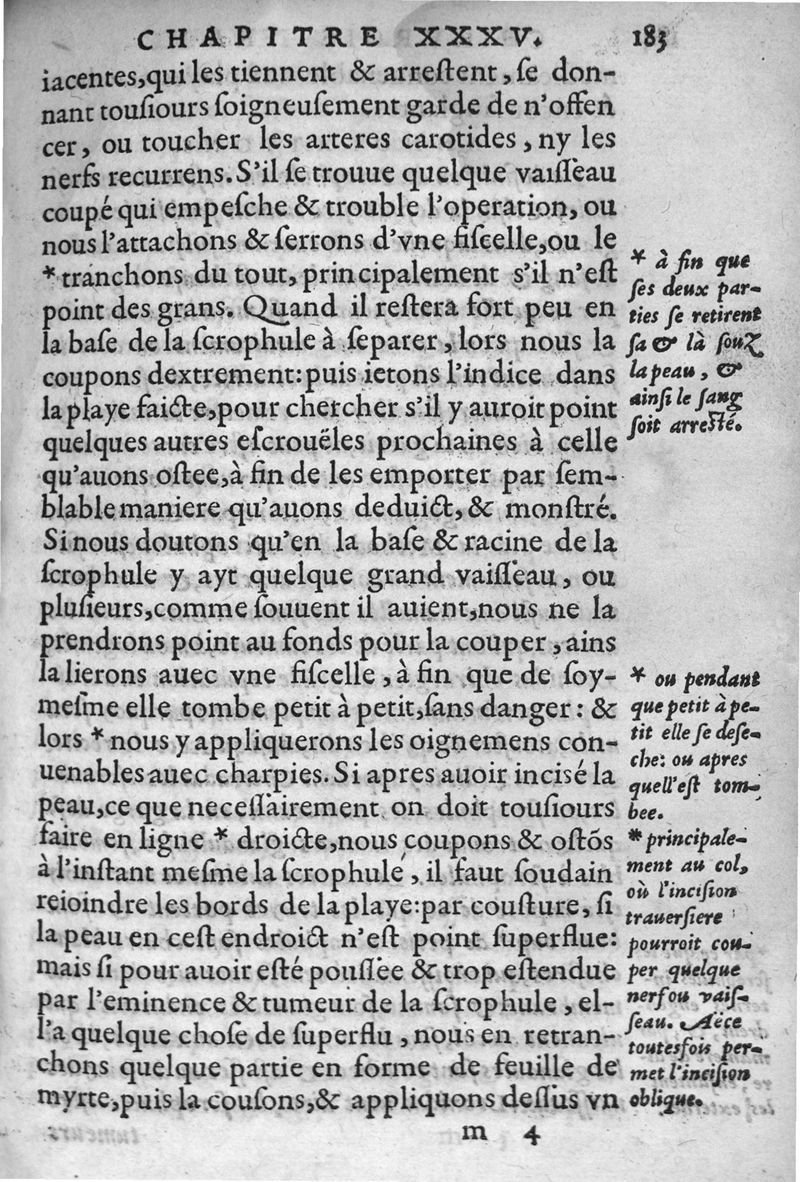 CHAPITRE XXXV. 183
iacentes,qui les tiennent & arreſtent, ſe don-
nant touſiours ſoigneuſement garde de n'offen
cer, ou toucher les arteres carotides, ny les
nerfs recurrens. S'il ſe trouue quelque vaiſſeau
coupé qui empeſche & trouble l'operation, ou
nous l'attachons & ſerrons d'vne fiſcelle,ou le
*tranchons du tout, principalement s'il n'eſt
point des grans. Quand il reſtera fort peu en
la baſe de la ſcrophule à ſeparer, lors nous la
coupons dextrement: puis ietons l'indice dans
la playe faicte,pour chercher s'il y auroit point
quelques autres eſcrouëles prochaines à celle
qu'auons oſtee,à fin de les emporter par ſem-
blable maniere qu'auons deduict, & monſtré.
Si nous doutons qu'en la baſe & racine de la
ſcrophule y ayt quelque grand vaiſſeau, ou
pluſieurs,comme ſouuent il auient,nous ne la
prendrons point au fonds pour la couper, ains
la lierons auec vne fiſcelle, à fin que de ſoy-
meſme elle tombe petit à petit,ſans danger: &
lors *nous y appliquerons les oignemens con-
uenables auec charpies. Si apres auoir inciſé la
peau,ce que neceſſairement on doit touſiours
faire en ligne * droicte,nous coupons & oſtõs
à l'inſtant meſme la ſcrophule, il faut ſoudain
reioindre les bords de la playe:par couſture, ſi
la peau en ceſt endroict n'eſt point ſuperflue:
mais ſi pour auoir eſté pouſſée & trop eſtendue
par l'eminence & tumeur de la ſcrophule, el-
l'a quelque choſe de ſuperflu, nous en retran-
chons quelque partie en forme de feuille de
myrte,puis la couſons,& appliquons deſſus vn
m 4
* à fin que
ſes deux par-
ties ſe retirent
ſa & là ſouz
la peau, &
ainſi le ſang
ſoit arreſté.
* ou pendant
que petit à pe-
tit elle ſe deſe-
che: ou apres
quell'eſt tom-
bee.
*principale-
ment au col,
où l'inciſion
trauerſiere
pourroit cou-
per quelque
nerf ou vaiſ-
ſeau. Aëce
toutesfois per-
met l'inciſion
oblique.